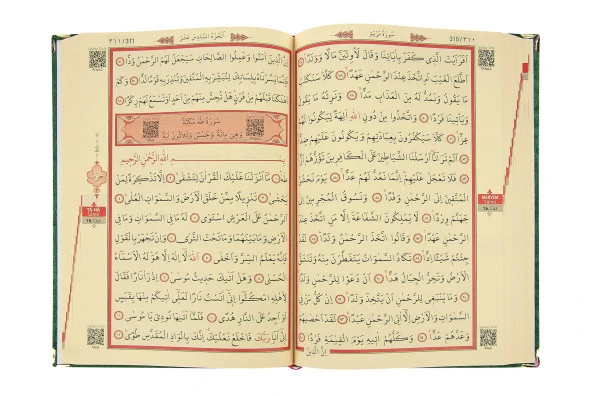 ٣١٠/310
سُورَةُ مَرْيَمَ
اَفَرَاَيْتَ الَّذ۪ي كَفَرَ بِاٰيَاتِنَا وَقَالَ لَاُو۫تَيَنَّ مَالًا وَوَلَدًا
اَطَّلَعَ الْغَيْبَ اَمِ اتَّخَذَ عِنْدَ الرَّحْمٰنِ عَهْدًا كَلَّا سَنَكْتُبُ
مَا يَقُولُ وَنَمُدُّ لَهُ مِنَ الْعَذَابِ مَدًّا وَنَرِثُهُ مَا يَقُولُ
وَيَأْت۪ينَا فَرْدًا وَاتَّخَذُوا مِنْ دُونِ اللّٰهِ اٰلِهَةً لِيَكُونُوا لَهُمْ
عِزًّا كَلَّا سَيَكْفُرُونَ بِعِبَادَتِهِمْ وَيَكُونُونَ عَلَيْهِمْ ضِدًّا
اَلَمْ تَرَ اَنَّا اَرْسَلْنَا الشَّيَاط۪ينَ عَلَى الْكَافِر۪ينَ تَؤُزُّهُمْ اَزًّا
فَلَا تَعْجَلْ عَلَيْهِمْ اِنَّمَا نَعُدُّ لَهُمْ عَدًّا يَوْمَ نَحْشُرُ
الْمُتَّق۪ينَ اِلَى الرَّحْمٰنِ وَفْدًا وَنَسُوقُ الْمُجْرِم۪ينَ اِلٰى
جَهَنَّمَ وِرْدًا لَا يَمْلِكُونَ الشَّفَاعَةَ اِلَّا مَنِ اتَّخَذَ عِنْدَ
الرَّحْمٰنِ عَهْدًا وَقَالُوا اتَّخَذَ الرَّحْمٰنُ وَلَدًا لَقَدْ
جِئْتُمْ شَيْـًٔا اِدًّا تَكَادُ السَّمٰوَاتُ يَتَفَطَّرْنَ مِنْهُ وَتَنْشَقُّ
الْاَرْضُ وَتَخِرُّ الْجِبَالُ هَدًّا اَنْ دَعَوْا لِلرَّحْمٰنِ وَلَدًا
وَمَا يَنْبَغ۪ي لِلرَّحْمٰنِ اَنْ يَتَّخِذَ وَلَدًا اِنْ كُلُّ مَنْ فِي
السَّمٰوَاتِ وَالْاَرْضِ اِلَّا اٰتِي الرَّحْمٰنِ عَبْدًا لَقَدْ اَحْصٰيهُمْ
وَعَدَّهُمْ عَدًّا وَكُلُّهُمْ اٰت۪يهِ يَوْمَ الْقِيٰمَةِ فَرْدًا
اِنَّ الَّذ۪ينَ
MERYEM
Sûresi
16. Cüz
اَلْجُزْءُ السَّادِسُ عَشَرَ
٣١١/311
اِنَّ الَّذ۪ينَ اٰمَنُوا وَعَمِلُوا الصَّالِحَاتِ سَيَجْعَلُ لَهُمُ الرَّحْمٰنُ وُدًّا
فَاِنَّمَا يَسَّرْنَاهُ بِلِسَانِكَ لِتُبَشِّرَ بِهِ الْمُتَّق۪ينَ وَتُنْذِرَ بِه۪ قَوْمًا لُدًّا وَكَمْ
اَهْلَكْنَا قَبْلَهُمْ مِنْ قَرْنٍ هَلْ تُحِسُّ مِنْهُمْ مِنْ اَحَدٍ اَوْ تَسْمَعُ لَهُمْ رِكْزًا
سُورَةُ طٰهٰ مَكِّيَّةٌ
وَهِيَ مِائَةٌ وَخَمْسٌ وَثَلَاثُونَ اٰيَةً
بِسْمِ اللّٰهِ الرَّحْمٰنِ الرَّح۪يمِ
طٰهٰ مَا اَنْزَلْنَا عَلَيْكَ الْقُرْاٰنَ لِتَشْقٰى اِلَّا تَذْكِرَةً لِمَنْ
يَخْشٰى تَنْز۪يلًا مِمَّنْ خَلَقَ الْاَرْضَ وَالسَّمٰوَاتِ الْعُلٰى
اَلرَّحْمٰنُ عَلَى الْعَرْشِ اسْتَوٰى لَهُ مَا فِي السَّمٰوَاتِ وَمَا فِي
الْاَرْضِ وَمَا بَيْنَهُمَا وَمَا تَحْتَ الثَّرٰى وَاِنْ تَجْهَرْ بِالْقَوْلِ
فَاِنَّهُ يَعْلَمُ السِّرَّ وَاَخْفٰى اَللّٰهُ لَا اِلٰهَ اِلَّا هُوَ لَهُ الْاَسْمَاءُ
الْحُسْنٰى وَهَلْ اَتٰيكَ حَد۪يثُ مُوسٰى اِذْ رَاٰ نَارًا فَقَالَ
لِاَهْلِهِ امْكُثُوا اِنّ۪ي اٰنَسْتُ نَارًا لَعَلّ۪ي اٰت۪يكُمْ مِنْهَا بِقَبَسٍ
اَوْ اَجِدُ عَلَى النَّارِ هُدًى فَلَمَّا اَتٰيهَا نُودِيَ يَا مُوسٰى
اِنّ۪ي اَنَا رَبُّكَ فَاخْلَعْ نَعْلَيْكَ اِنَّكَ بِالْوَادِ الْمُقَدَّسِ طُوًى
TÂ-HÂ
Sûresi
16. Cüz